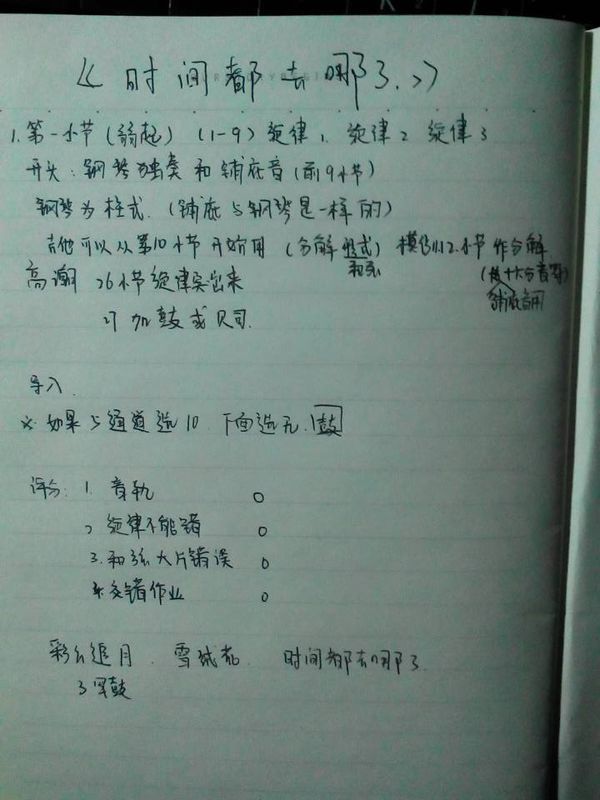 《时间都去哪了》
1.第一小节(弱起) (1-9) 旋律1 旋律2 旋律3
开头:钢琴独奏和铺底音(前9小节)
钢琴为柱式.(铺底与钢琴是一样的)
吉他可以从第10小节开始用 (分解形式) 模仿11.12.小节 作分解
和弦 (十六分音符)
铺底音用
高潮 26小节旋律突出来
可加鼓或贝司.
导入
※如果5通道选10.下面选无.鼓
评分: 1. 音轨 0
2 旋律不能错 0
3.和弦大片错误 0
4.交错作业 0
彩云追月. 雪绒花. 时间都去哪了
军鼓